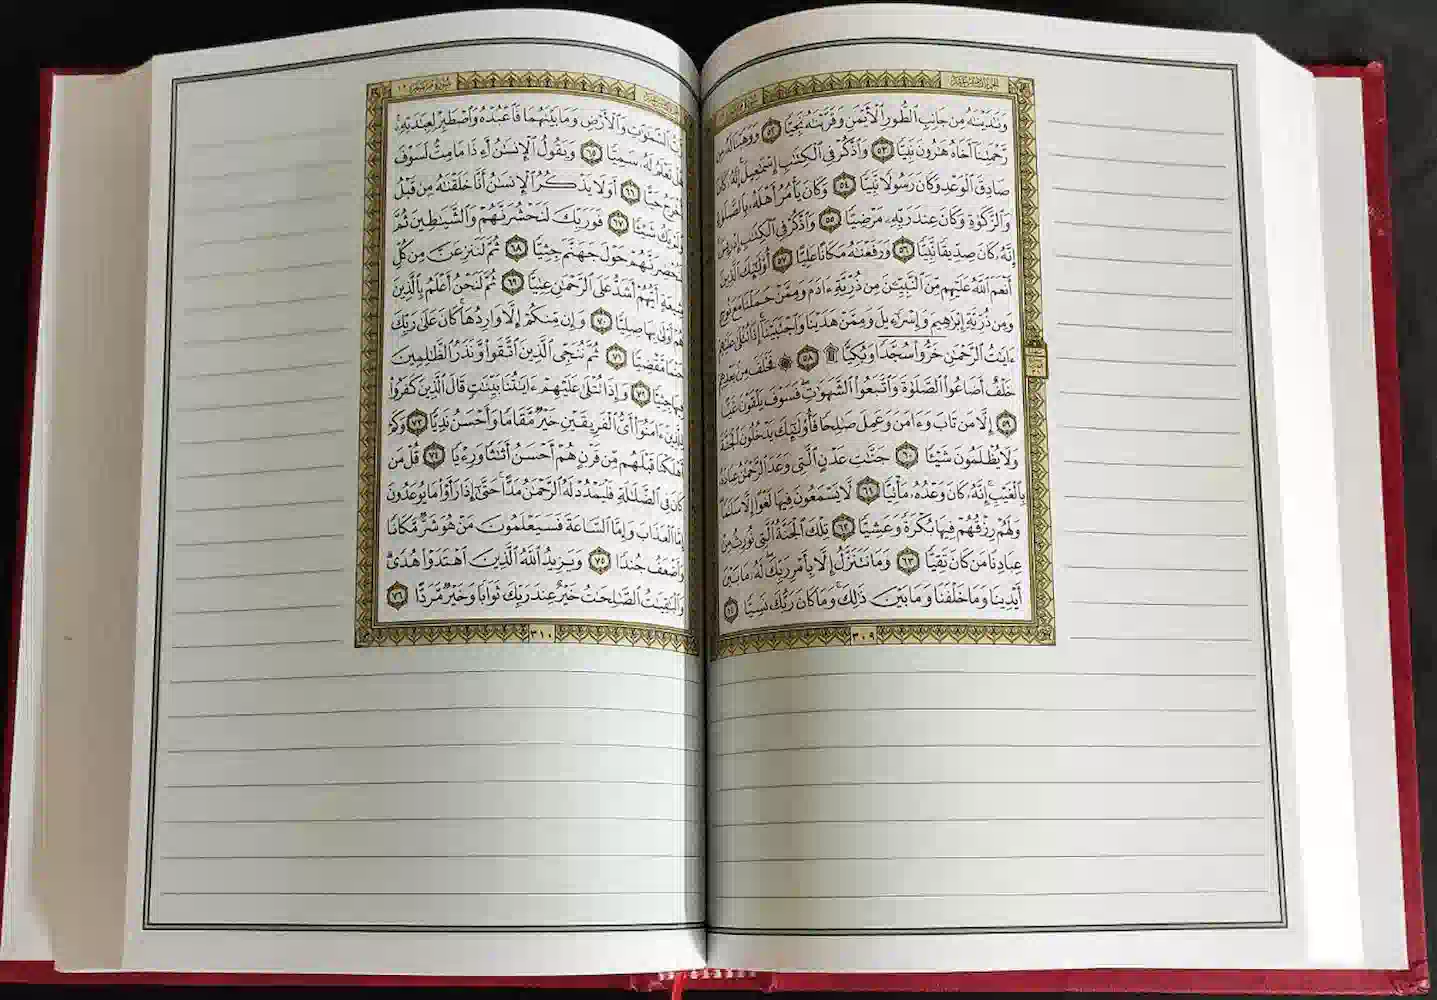 الجزء السادس عشر
وَنَٰدَيْنَٰهُ مِن جَانِبِ ٱلطُّورِ ٱلْأَيْمَنِ وَقَرَّبْنَٰهُ نَجِيًّا ٥٢ وَوَهَبْنَا لَهُۥ مِن
رَّحْمَتِنَآ أَخَاهُ هَٰرُونَ نَبِيًّا ٥٣ وَٱذْكُرْ فِى ٱلْكِتَٰبِ إِسْمَٰعِيلَ إِنَّهُۥ كَانَ
صَادِقَ ٱلْوَعْدِ وَكَانَ رَسُولًا نَّبِيًّا ٥٤ وَكَانَ يَأْمُرُ أَهْلَهُۥ بِٱلصَّلَوٰةِ
وَٱلزَّكَوٰةِ وَكَانَ عِندَ رَبِّهِۦ مَرْضِيًّا ٥٥ وَٱذْكُرْ فِى ٱلْكِتَٰبِ إِدْرِيسَ
إِنَّهُۥ كَانَ صِدِّيقًا نَّبِيًّا ٥٦ وَرَفَعْنَٰهُ مَكَانًا عَلِيًّا ٥٧ أُو۟لَٰٓئِكَ ٱلَّذِينَ
أَنْعَمَ ٱللَّهُ عَلَيْهِم مِّنَ ٱلنَّبِيِّـۧنَ مِن ذُرِّيَّةِ ءَادَمَ وَمِمَّنْ حَمَلْنَا مَعَ نُوحٍ
وَمِن ذُرِّيَّةِ إِبْرَٰهِيمَ وَإِسْرَٰٓءِيلَ وَمِمَّنْ هَدَيْنَا وَٱجْتَبَيْنَآ إِذَا تُتْلَىٰ عَلَيْهِمْ
ءَايَٰتُ ٱلرَّحْمَٰنِ خَرُّوا۟ سُجَّدًا وَبُكِيًّا ۩ ٥٨ ۞ فَخَلَفَ مِنۢ بَعْدِهِمْ
خَلْفٌ أَضَاعُوا۟ ٱلصَّلَوٰةَ وَٱتَّبَعُوا۟ ٱلشَّهَوَٰتِ فَسَوْفَ يَلْقَوْنَ غَيًّا
٥٩ إِلَّا مَن تَابَ وَءَامَنَ وَعَمِلَ صَٰلِحًا فَأُو۟لَٰٓئِكَ يَدْخُلُونَ ٱلْجَنَّةَ
وَلَا يُظْلَمُونَ شَيْـًٔا ٦٠ جَنَّٰتِ عَدْنٍ ٱلَّتِى وَعَدَ ٱلرَّحْمَٰنُ عِبَادَهُۥ
بِٱلْغَيْبِ إِنَّهُۥ كَانَ وَعْدُهُۥ مَأْتِيًّا ٦١ لَّا يَسْمَعُونَ فِيهَا لَغْوًا إِلَّا سَلَٰمًا
وَلَهُمْ رِزْقُهُمْ فِيهَا بُكْرَةً وَعَشِيًّا ٦٢ تِلْكَ ٱلْجَنَّةُ ٱلَّتِى نُورِثُ مِنْ
عِبَادِنَا مَن كَانَ تَقِيًّا ٦٣ وَمَا نَتَنَزَّلُ إِلَّا بِأَمْرِ رَبِّكَ لَهُۥ مَا بَيْنَ
أَيْدِينَا وَمَا خَلْفَنَا وَمَا بَيْنَ ذَٰلِكَ وَمَا كَانَ رَبُّكَ نَسِيًّا ٦٤
٣٠٩
سورة مريم ١٩
ٱلسَّمَٰوَٰتِ وَٱلْأَرْضِ وَمَا بَيْنَهُمَا فَٱعْبُدْهُ وَٱصْطَبِرْ لِعِبَٰدَتِهِۦ
هَلْ تَعْلَمُ لَهُۥ سَمِيًّا ٦٥ وَيَقُولُ ٱلْإِنسَٰنُ أَءِذَا مَا مِتُّ لَسَوْفَ
أُخْرَجُ حَيًّا ٦٦ أَوَلَا يَذْكُرُ ٱلْإِنسَٰنُ أَنَّا خَلَقْنَٰهُ مِن قَبْلُ
وَلَمْ يَكُ شَيْـًٔا ٦٧ فَوَرَبِّكَ لَنَحْشُرَنَّهُمْ وَٱلشَّيَٰطِينَ ثُمَّ
لَنُحْضِرَنَّهُمْ حَوْلَ جَهَنَّمَ جِثِيًّا ٦٨ ثُمَّ لَنَنزِعَنَّ مِن كُلِّ
شِيعَةٍ أَيُّهُمْ أَشَدُّ عَلَى ٱلرَّحْمَٰنِ عِتِيًّا ٦٩ ثُمَّ لَنَحْنُ أَعْلَمُ بِٱلَّذِينَ
هُمْ أَوْلَىٰ بِهَا صِلِيًّا ٧٠ وَإِن مِّنكُمْ إِلَّا وَارِدُهَا كَانَ عَلَىٰ رَبِّكَ
حَتْمًا مَّقْضِيًّا ٧١ ثُمَّ نُنَجِّى ٱلَّذِينَ ٱتَّقَوا۟ وَّنَذَرُ ٱلظَّٰلِمِينَ
فِيهَا جِثِيًّا ٧٢ وَإِذَا تُتْلَىٰ عَلَيْهِمْ ءَايَٰتُنَا بَيِّنَٰتٍ قَالَ ٱلَّذِينَ كَفَرُوا۟
لِلَّذِينَ ءَامَنُوٓا۟ أَىُّ ٱلْفَرِيقَيْنِ خَيْرٌ مَّقَامًا وَأَحْسَنُ نَدِيًّا ٧٣ وَكَمْ
أَهْلَكْنَا قَبْلَهُم مِّن قَرْنٍ هُمْ أَحْسَنُ أَثَٰثًا وَرِءْيًا ٧٤ قُلْ مَن
كَانَ فِى ٱلضَّلَٰلَةِ فَلْيَمْدُدْ لَهُ ٱلرَّحْمَٰنُ مَدًّا حَتَّىٰٓ إِذَا رَأَوْا۟ مَا يُوعَدُونَ
إِمَّا ٱلْعَذَابَ وَإِمَّا ٱلسَّاعَةَ فَسَيَعْلَمُونَ مَنْ هُوَ شَرٌّ مَّكَانًا
وَأَضْعَفُ جُندًا ٧٥ وَيَزِيدُ ٱللَّهُ ٱلَّذِينَ ٱهْتَدَوْا۟ هُدًى
وَٱلْبَٰقِيَٰتُ ٱلصَّٰلِحَٰتُ خَيْرٌ عِندَ رَبِّكَ ثَوَابًا وَخَيْرٌ مَّرَدًّا ٧٦
٣١٠